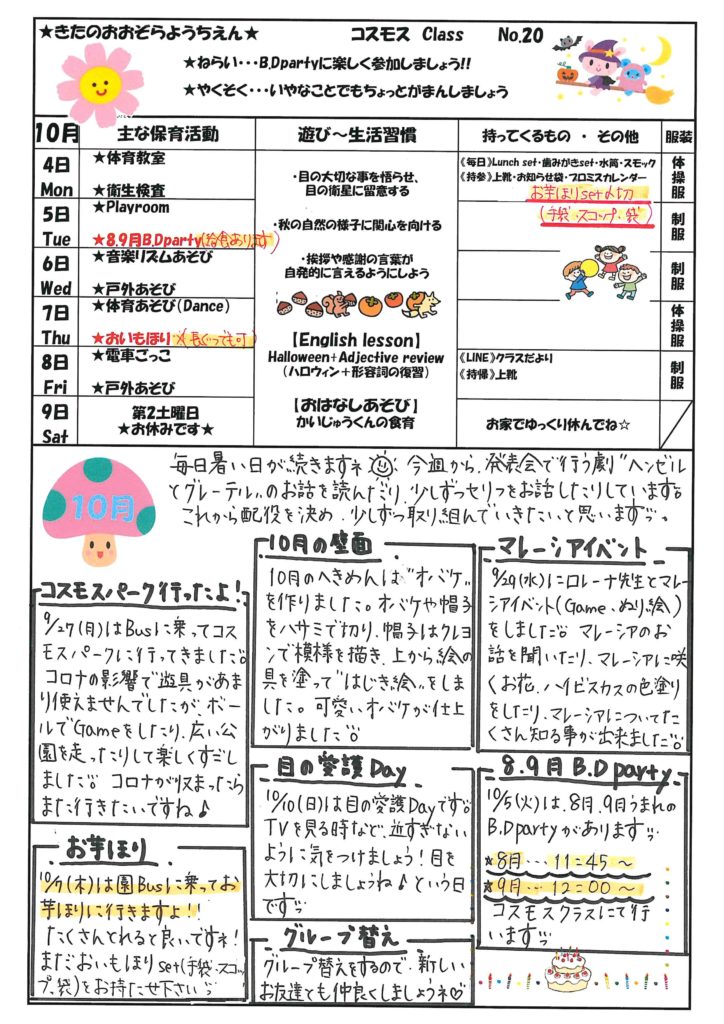 ★きたのおおぞらようちえん★ コスモス Class No.20
★ねらい・・・B.Dpartyに楽しく参加しましょう!!
★やくそく・・・いやなことでもちょっとがまんしましょう
10月 主な保育活動 遊び～生活習慣 持ってくるもの ・ その他 服装
4日 Mon
★体育教室
★衛生検査
5日 Tue
★Playroom
★8.9月B.Dparty(給食あります)
6日 Wed
★音楽リズムあそび
★戸外あそび
7日 Thu
★体育あそび(Dance)
★おいもほり ※(長ぐつでも可)
8日 Fri
★電車ごっこ
★戸外あそび
9日 Sat
第2土曜日
★お休みです★
・目の大切な事を悟らせ、
目の衛星に留意する
・秋の自然の様子に関心を向ける
・挨拶や感謝の言葉が
自発的に言えるようにしよう
【English lesson】
Halloween+Adjective review
(ハロウィン+形容詞の復習)
【おはなしあそび】
かいじゅうくんの食育
《毎日》Lunch set・歯みがきset・水筒・スモック
《持参》上靴・お知らせ袋・プロミスカレンダー
お芋ほりset〆切
(手袋・スコップ・袋)
《LINE》クラスだより
《持帰》上靴
お家でゆっくり休んでね☆
体操服
制服
制服
体操服
制服
10月
毎日暑い日が続きますネ 今週から、発表会で行う劇"ヘンゼル
とグレーテル"のお話を読んだり、少しずつセリフをお話したりしています。
これから配役を決め、少しずつ取り組んでいきたいと思います。
コスモスパーク行ったよ!
9/27(月)はBusに乗ってコス
モスパークに行ってきました。
コロナの影響で遊具があま
り使えませんでしたが、ボー
ルでGameをしたり、広い公
園を走ったりして楽しくすごし
ました。コロナが収まったら
また行きたいですね♪
お芋ほり
10/7(木)は園Busに乗ってお
芋ほりに行きますよ!!
たくさんとれると良いですネ!
まだおいもほりset(手袋・スコッ
プ、袋)をお持たせ下さい
10月の壁面
10月のへきめんは"オバケ"
を作りました。オバケや帽子
をハサミで切り、帽子はクレヨ
ンで模様を描き、上から絵の
具を塗って"はじき絵"をしま
した。可愛いオバケが仕上
がりました
目の愛護Day
10/10(日)は目の愛護Dayです。
TVを見る時など、近すぎない
ように気をつけましょう!目を
大切にしましょうね♪という日
です
グループ替え
グループ替えをするので、新しい
お友達とも仲良くしましょうネ♡
マレーシアイベント
9/29(水)にロレーナ先生とマレー
シアイベント(Game、ぬり絵)
をしました マレーシアのお
話を聞いたり、マレーシアに咲
くお花、ハイビスカスの色塗り
をしたり、マレーシアについてた
くさん知る事が出来ました
8.9月 B.D party
10/5(火)は、8月、9月うまれの
B.Dpartyがあります
★8月・・・11:45～
★9月・・・12:00～
コスモスクラスにて行
います